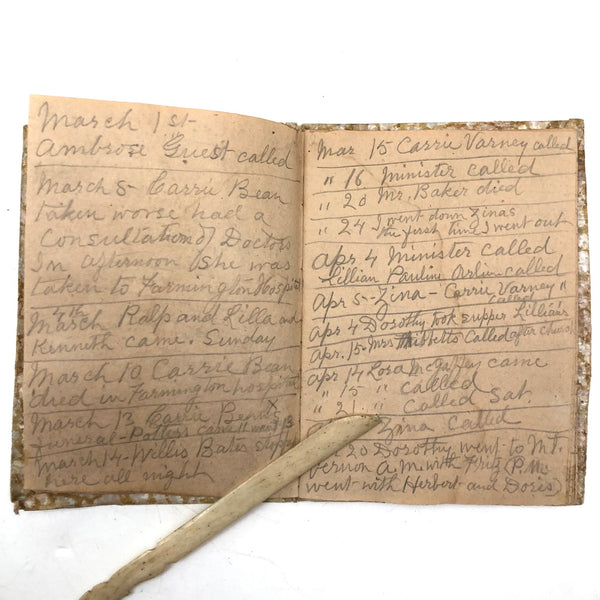 March 1st
Ambrose Guest called
March 8 Carrie Bean
taken worse had a
Consultation of Doctors
In afternoon She was
taken to Farmington Hospital
March 4th Ralp and Lilla and
Kenneth came. Sunday
March 10 Carrie Bean
died in Farmington hospital
March 13 Carrie Bean
funeral - Potters came
March 14 - Willis Bates slept
here all night
Mar 15 Carrie Varney called
" 16 Minister called
" 20 Mr. Baker died
" 24 I went down Zinas
the first time I went out
Apr 4 Minister called
Lillian Pauline called
Apr 5 - Zina - Carrie Varney "
called
Apr 4 Dorothy took supper Lillians
Apr. 15 - Mrs Tibbetts called after church
Apr 14 Rosa came
" 15 " called
" 21 " called Sat.
Zina called
20 Dorothy went to Mt.
Vernon A.M. with Fritz (P.M.
went with Herbert and Doris)